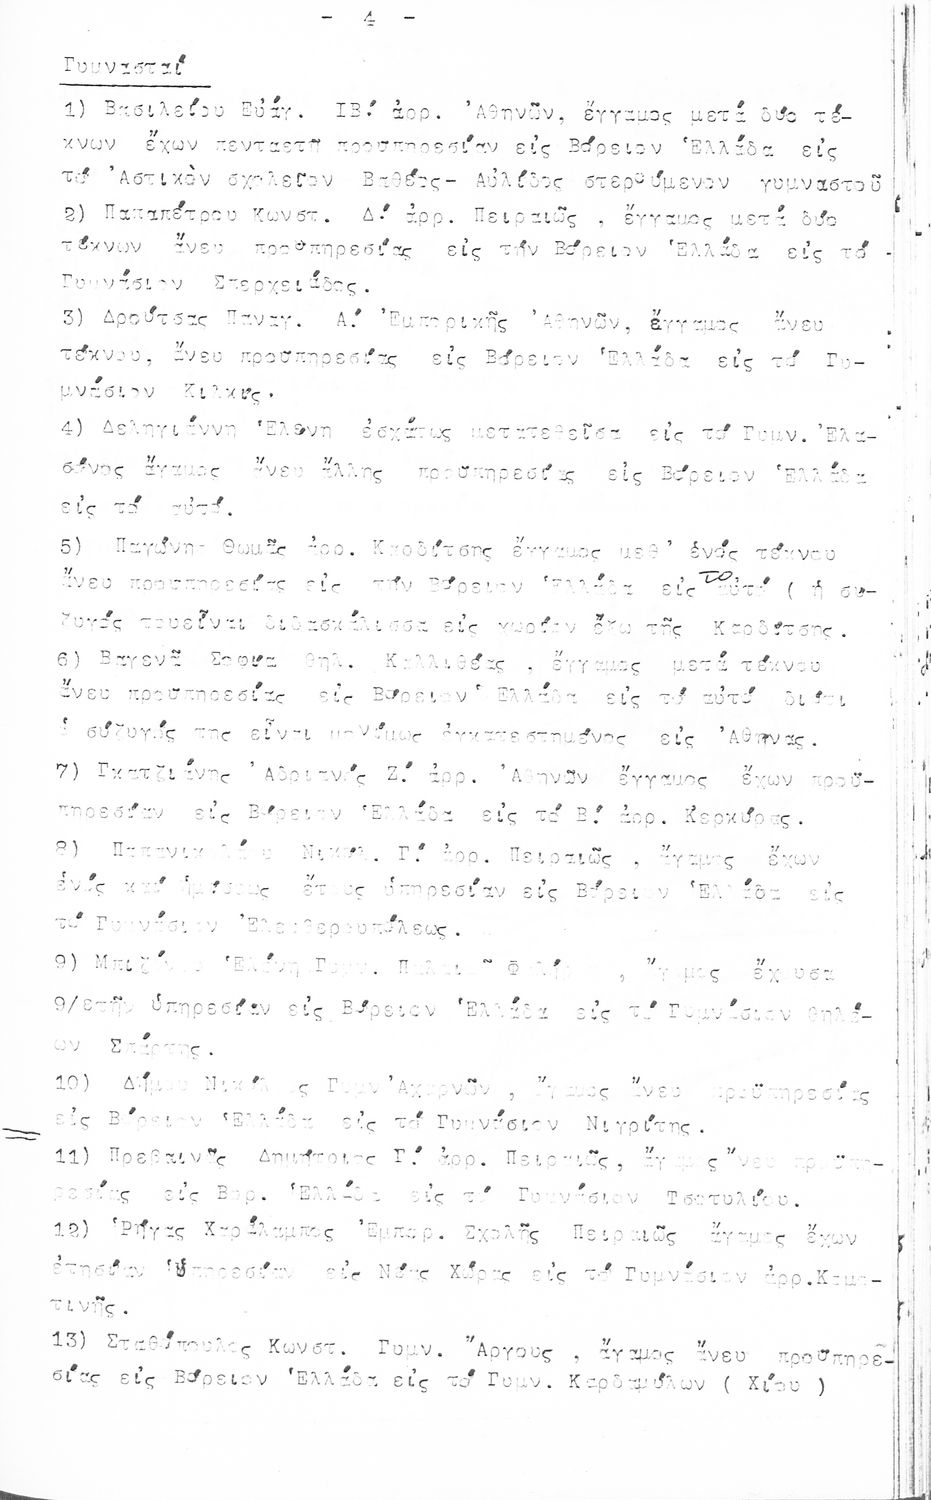 - 4 -
Γυμνασταί
1) Βασιλείου Εὐάγ. ΙΒ! ἀρρ. Ἀθηνῶν, ἔγγαμος μετά δύο τέ-
κνων ἔχων πενταετῆ προϋπηρεσίαν εἰς Βόρειον Ἑλλάδα εἰς
τό Ἀστικόν σχολεῖον Βαθέος- Αὐλίδος στερούμενον γυμναστοῦ
2) Παπαπέτρου Κωνστ. Δ! ἀρρ. Πειραιῶς , ἔγγαμος μετά δύο
τέκνων ἄνευ προϋπηρεσίας εἰς τήν Βόρειον Ἑλλάδα εἰς τό
Γυμνάσιον Σπερχειάδος.
3) Δρούτσας Παναγ. Α! Ἐμπορικῆς Ἀθηνῶν, ἔγγαμος ἄνευ
τέκνου, ἄνευ προϋπηρεσίας εἰς Βόρειον Ἑλλάδα εἰς τό Γυ-
μνάσιον Κιλκίς.
4) Δεληγιάννη Ἑλένη ἐσχάτως μετατεθεῖσα εἰς τό Γυμν. Ἐλα-
σόνος ἄγαμος ἄνευ ἄλλης προϋπηρεσίας εἰς Βόρειον Ἑλλάδα
εἰς τό αὐτό.
5) Παγώνη Θωμᾶς ἀρρ. Καρδίτσης ἔγγαμος μεθ' ἑνός τέκνου
ἄνευ προϋπηρεσίας εἰς τήν Βόρειον Ἑλλάδα εἰς το αὐτό ( ἡ συ-
ζυγός του εἶναι διδασκάλισσα εἰς χωρίον ἔξω τῆς Καρδίτσης.
6) Βαγενᾶ Σοφία θηλ. Καλλιθέας , ἔγγαμος μετά τέκνου
ἄνευ προϋπηρεσίας εἰς Βόρειον Ἑλλάδα εἰς τό αὐτό διότι
ὁ σύζυγός της εἶναι μονίμως ἐγκατεστημένος εἰς Ἀθήνας.
7) Γκατζιάνης Ἀδριανός Ζ! ἀρρ. Ἀθηνῶν ἔγγαμος ἔχων προϋ-
πηρεσίαν εἰς Βόρειον Ἑλλάδα εἰς τό Β! ἀρρ. Κερκύρας.
8) Παπανικολάου Νικολ. Γ! ἀρρ. Πειραιῶς , ἄγαμος ἔχων
ἑνός καί ἡμίσους ἔτους ὑπηρεσίαν εἰς Βόρειον Ἑλλάδα εἰς
τό Γυμνάσιον Ἐλευθερουπόλεως.
9) Ἑλένη Γυμν. Παλαιοῦ , ἄγαμος ἔχουσα
9/ετῆν ὑπηρεσίαν εἰς Βόρειον Ἑλλάδα εἰς τό Γυμνάσιον θηλέ-
ων Σπάρτης.
10) Δήμου Νικόλαος Γυμν Ἀχαρνῶν , ἄγαμος ἄνευ προϋπηρεσίας
εἰς Βόρειον Ἑλλάδα εἰς τό Γυμνάσιον Νιγρίτης.
11) Δημήτριος Γ! ἀρρ. Πειραιῶς, ἄγαμος ἄνευ προϋπη-
ρεσίας εἰς Βορ. Ἑλλάδα εἰς τό Γυμνάσιον Τσοτυλίου.
12) Ῥήγας Χαράλαμπος Ἐμπορ. Σχολῆς Πειραιῶς ἄγαμος ἔχων
ἐτησίαν ὑπηρεσίαν εἰς Νέας Χώρας εἰς τό Γυμνάσιον ἀρρ.Κομο-
τινῆς.
13) Σταθόπουλος Κωνστ. Γυμν. Ἄργους , ἄγαμος ἄνευ προϋπηρε-
σίας εἰς Βόρειον Ἑλλάδα εἰς τό Γυμν. Καρδαμύλων ( Χίου )